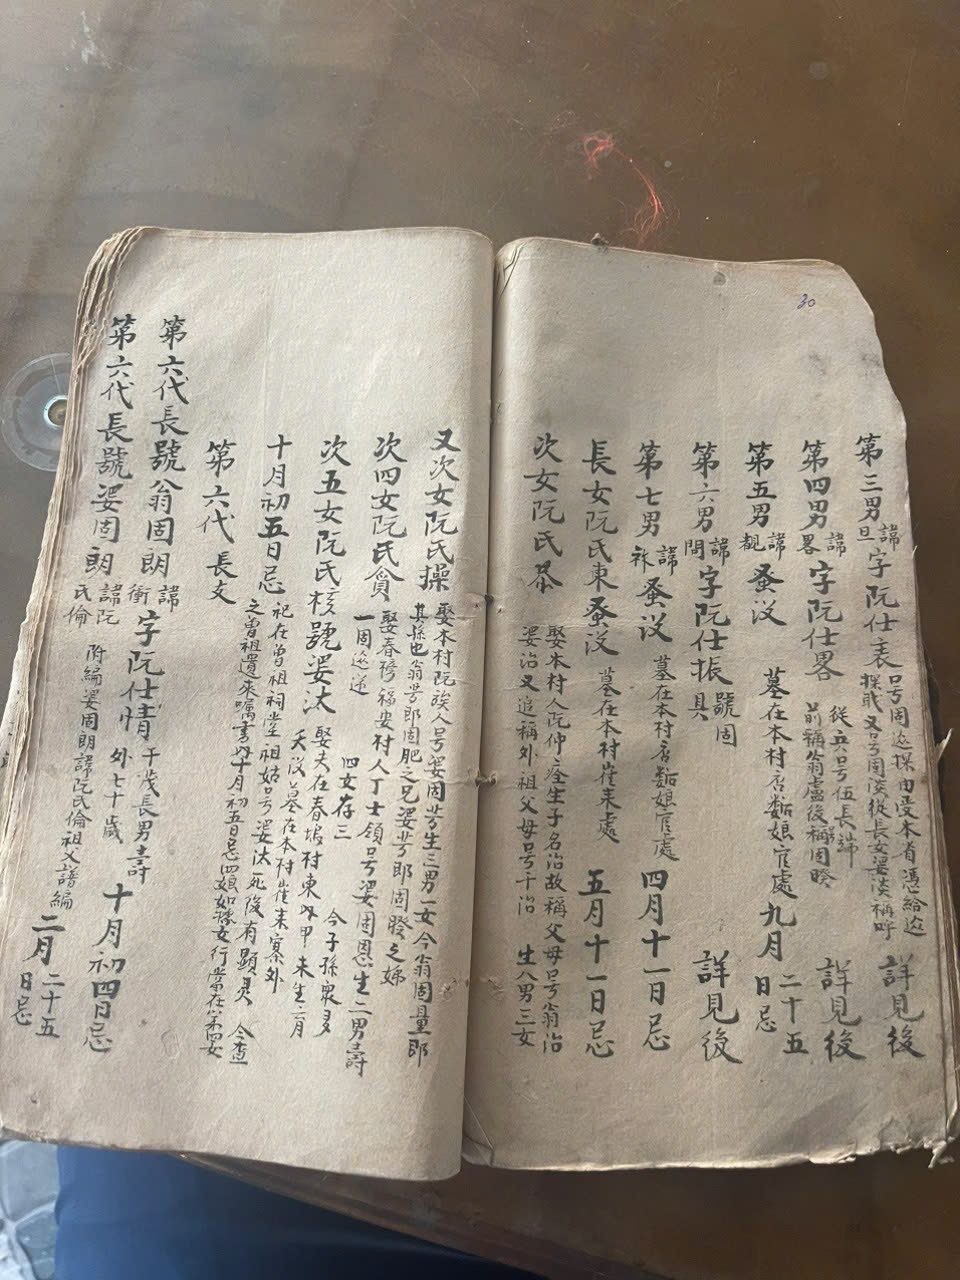 30
第三男諱旦字阮仕表 号固巡探由受本省憑給巡探戢又号固淡從長女婆淡稱呼 詳見後
第四男諱畧字阮仕畧 從兵号伍長諱前稱翁盧後稱固睽 詳見後
第五男諱覩蚤没 墓在本村𠰺娘官處 九月二十五日忌
第六男諱閏字阮仕振 號固具 詳見後
第七男諱 蚤没 墓在本村娘官處 四月十一日忌
長女阮氏東蚤没 墓在本村崔来處 五月十一日忌
次女阮氏恭 娶本村人阮仲 生子名治故稱父母号翁治婆治又追稱外祖父母号千治 生八男三女
又次女阮氏操 娶本村阮族人号婆固芳生三男一女今翁固量郎其孫也翁芳郎固肥之兄婆芳郎固睽之姊
次四女阮氏貪 娶春 福安村人丁士領号婆固恩生二男壽一固巡逆 四女存三
次五女阮氏核號婆汰 娶夫在春塢村東 甲未生育夭没墓在本村崔来寨外 今子孫衆多
十月初五日忌 祀在曾祖祠堂祖姑号婆汰死後有顯灵 今查之曾祖遺来囑書 十月初五日忌四娘如據女行當在第四女
第六代長支
第六代長號翁固朗諱衝字阮仕情 千茂長男壽外七十歲 十月初四日忌
第六代長號婆固朗諱阮氏倫 附編婆固朗諱阮氏倫祖父譜編 二月二十五日忌